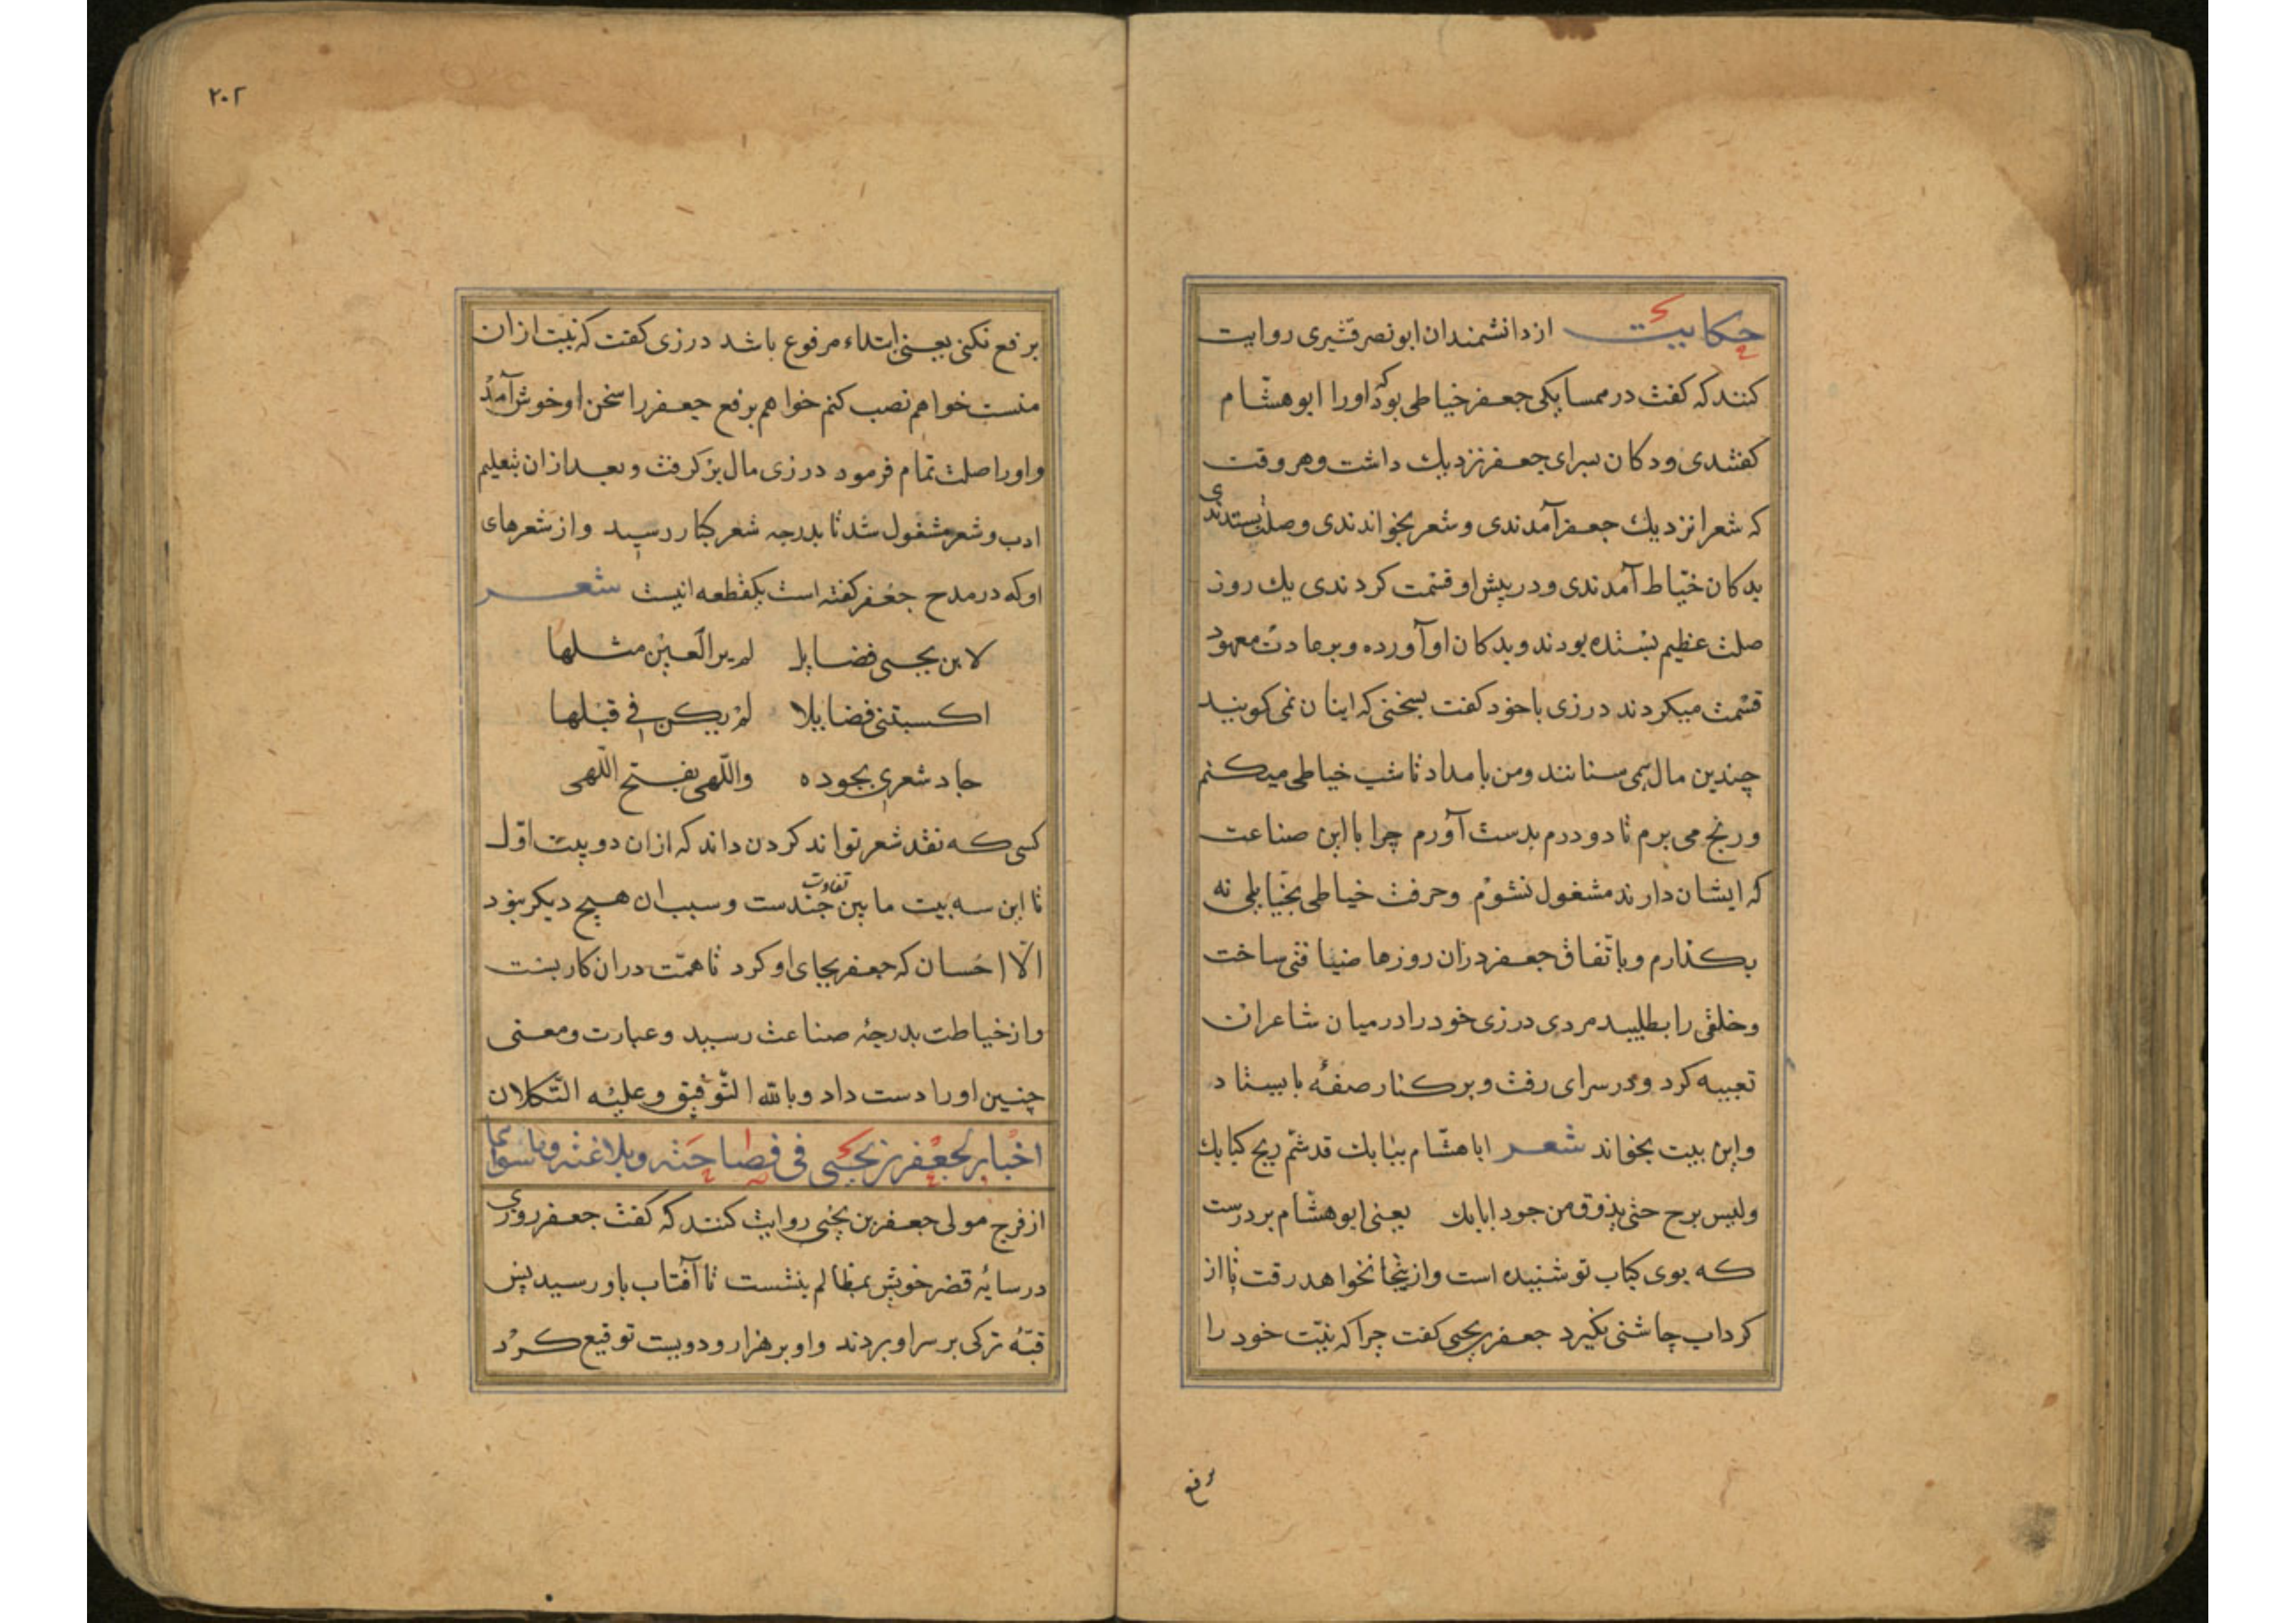 حکایت از دانشمندان ابو نصر قشیری روایت
کنند که کفت در همسایکی جعفر خیاطی بود که اورا ابو هشام
کفتندی و دکان بسرای جعفر نزدیك داشت و هر وقت
که شعرا نزدیك جعفر آمدندی و شعر بخواندندی و صلت بستدندی
بدکان خیّاط آمدندی و در پیش او قسمت کردندی یك روز
صلت عظیم بستده بودند و بدکان او آورده و بر عادت معهود
قسمت میکردند درزی با خود کفت بسخنی که اینان نمی کویند
چندین مال می ستانند و من بامداد تا شب خیاطی میکنم
و رنج می برم تا دو درم بدست آورم چرا با این صناعت
که ایشان دارند مشغول نشوم و حرفت خیاطی نه
بکذارم و باتّفاق جعفر دران روزها ضیافتی ساخت
و خلقی را بطلبید مردی درزی خود را در میان شاعران
تعبیه کرد و در سرای رفت و بر کنار صفّه بایستاد
و این بیت بخواند شعر اباهشّام ببابك قد شمّ ریح کبابك
ولیس برح حتی یذوق من جود ابابك یعنی ابو هشّام بر درست
که بوی کباب تو شنیده است و ازینجا نخواهد رفت تا از
کرداب چاشنی نکیرد جعفر یحیی کفت چرا که بیّت خود را
بر فع
٢٠٢
بر فع نکنی یعنی ابتداء مرفوع باشد درزی کفت که بیت ازان
منست خواهم نصب کنم خواهم بر فع جعفر را سخن او خوش آمد
و اورا صلت تمام فرمود درزی مال بر کرفت و بعد ازان بتعلیم
ادب و شعر مشغول شد تا بدرجه شعر کبار رسید و از شعرهای
او که در مدح جعفر کفته است یکقطعه اینست شعر
لابن یحیی فضایل لم یر العین مثلها
اکسبتنی فضایلا لم یکن فی قبلها
جاد شعری بجوده واللّهی یفتح اللّهی
کسی که نقد شعر تواند کردن داند که ازان دو بیت اوّل
تا این سه بیت ما بین تفاوت چندست و سبب ان هیچ دیکر نبود
الّا احسان که جعفر بجای او کرد تا همّت دران کار بست
و از خیاطت بدرجهٔ صناعت رسید و عبارت و معنی
چنین اورا دست داد و بالله التّوفیق و علیه التّکلان
اخبار لجعفر بن یحیی فی فصاحته و بلاغته وما سواهما
از فرج مولی جعفر بن یحیی روایت کنند که کفت جعفر روزی
در سایهٔ قصر خویش بمظالم بنشست تا آفتاب باو رسید پس
قبّهٔ ترکی بر سر او بردند و او بر هزار و دویست توقیع کرد